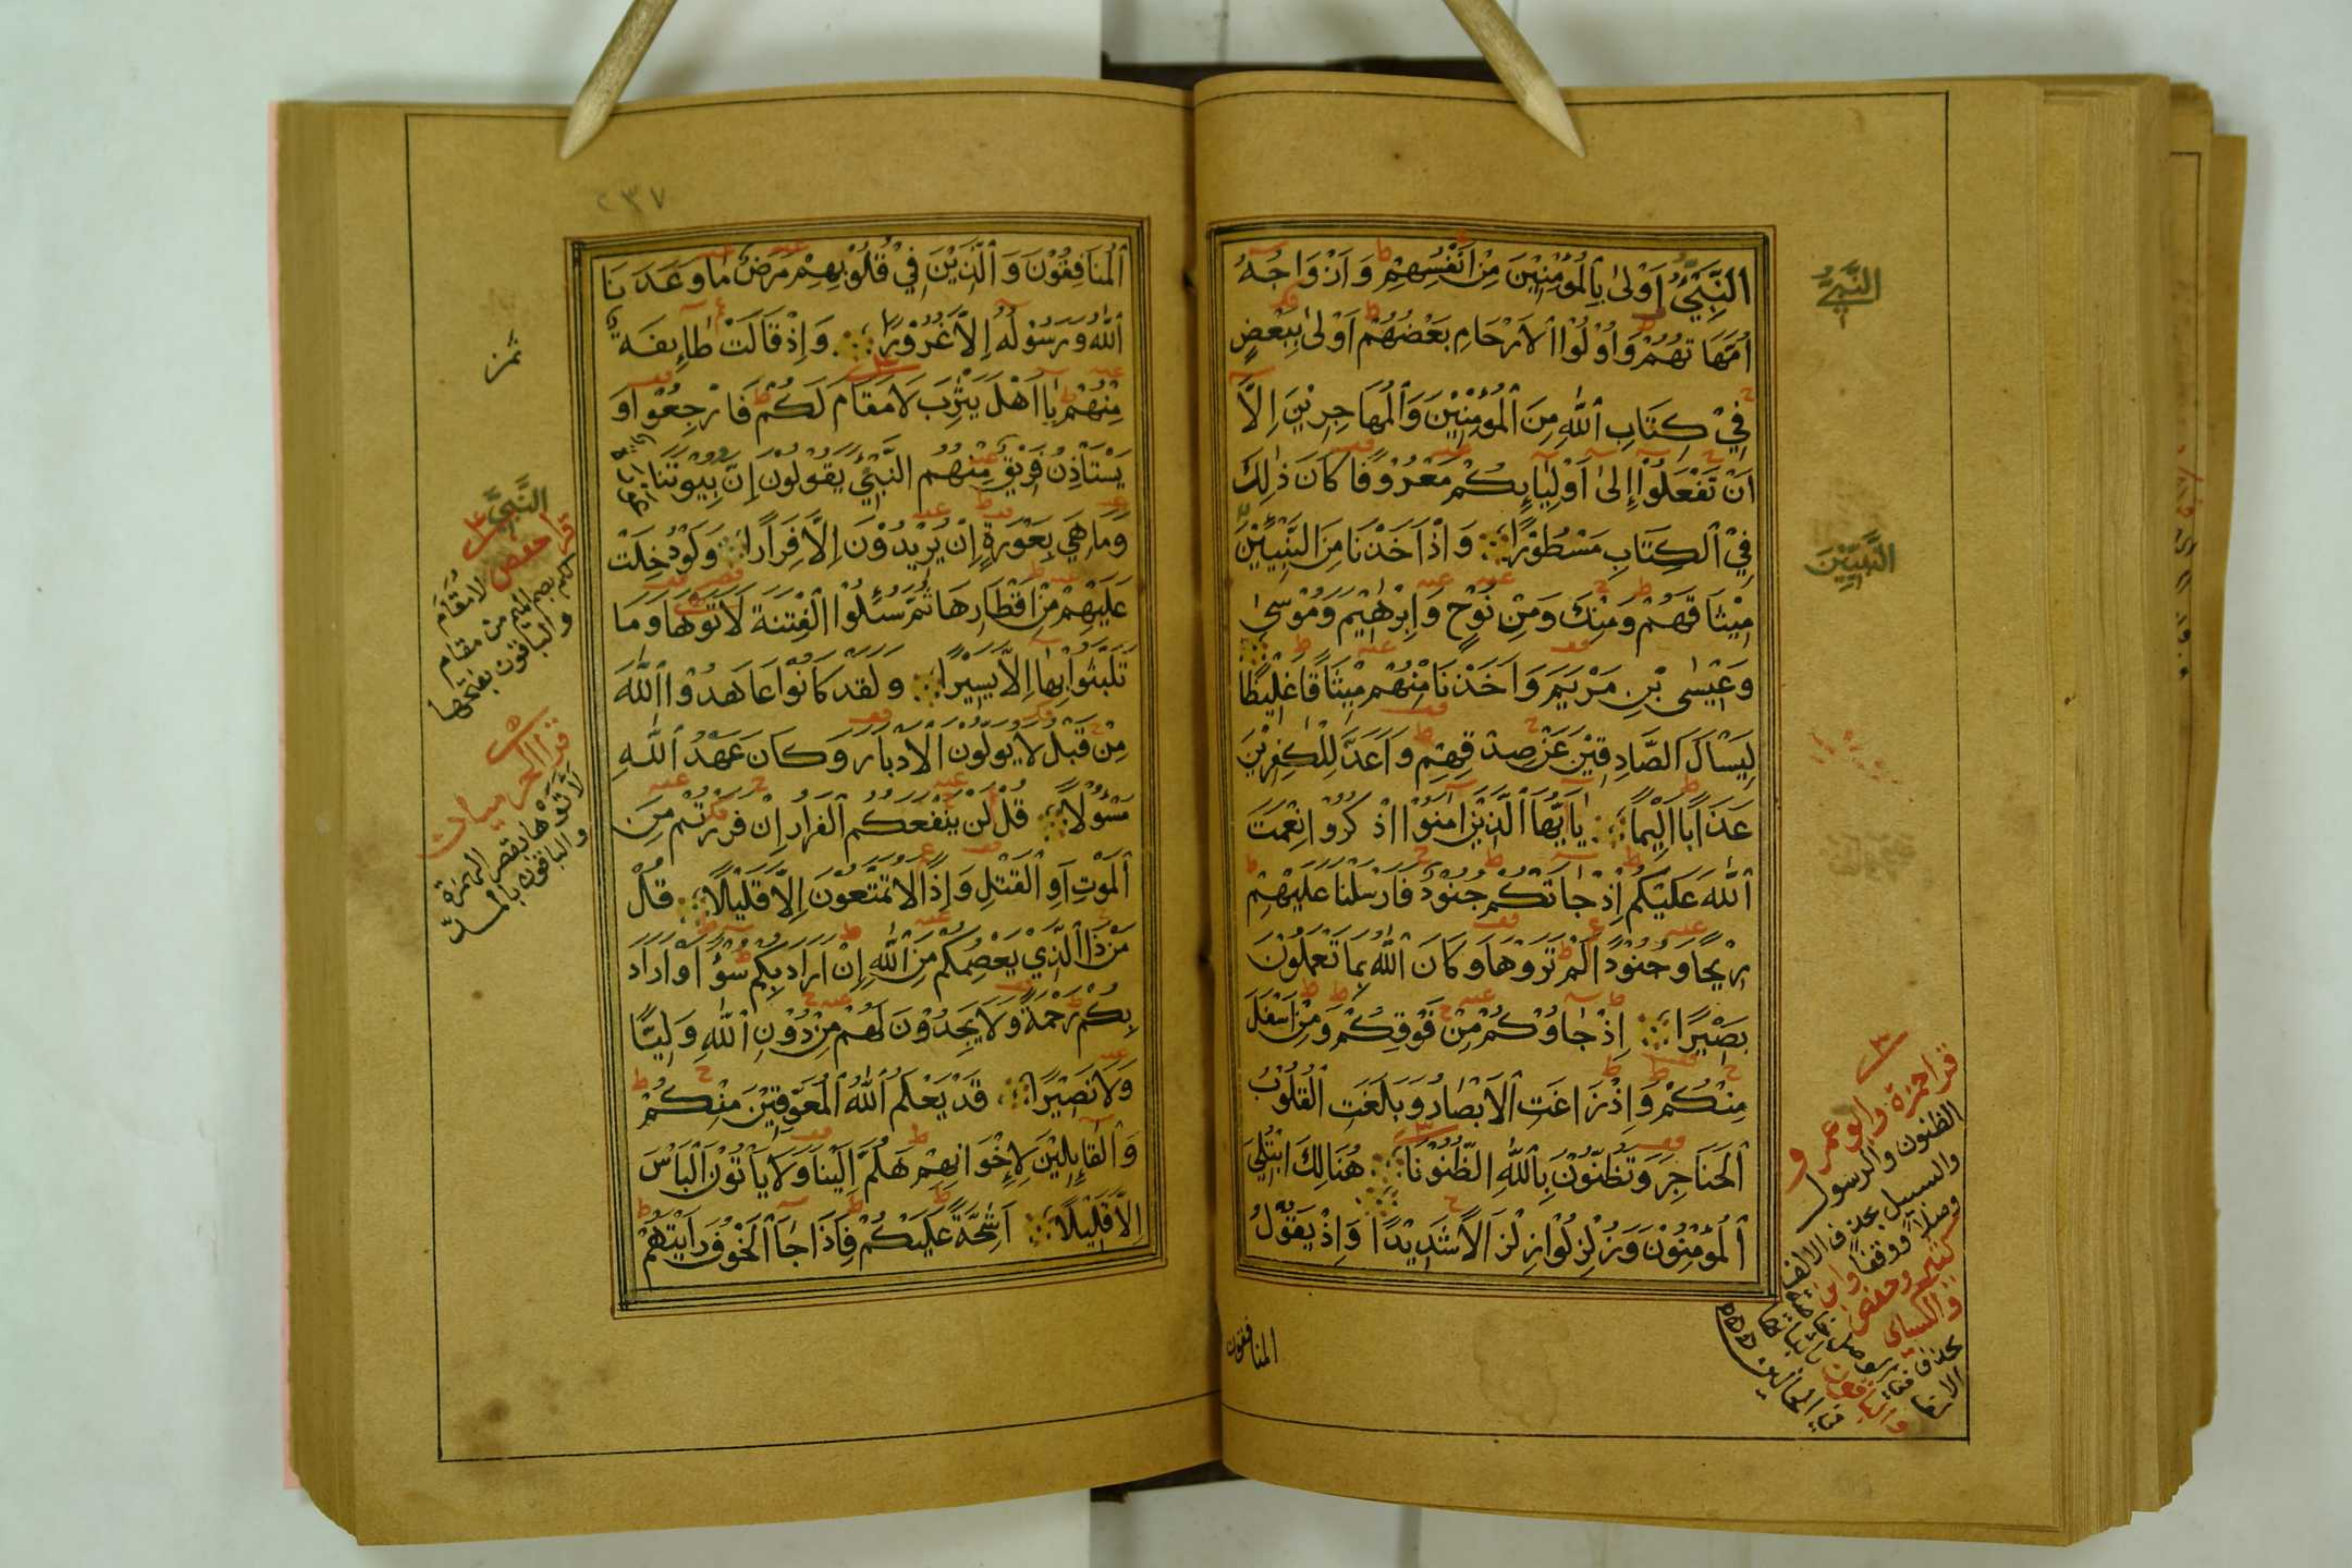 النَّبِيُّ أَوْلىٰ بِالْمُؤْمِنِيْنَ مِنْ اَنْفُسِهِمْ وَاَزْوَاجُهُ
اُمَّهَاتُهُمْ وَاُوْلُوا الْاَرْحَامِ بَعْضُهُمْ اَوْلىٰ بِبَعْضٍ
فِيْ كِتَابِ اللّٰهِ مِنَ الْمُؤْمِنِيْنَ وَالْمُهَاجِرِيْنَ اِلَّا
اَنْ تَفْعَلُوْا اِلىٰ اَوْلِيَائِكُمْ مَعْرُوْفًا كَانَ ذٰلِكَ
فِيْ الْكِتَابِ مَسْطُوْرًا وَاِذْ اَخَذْنَا مِنَ النَّبِيِّيْنَ
مِيْثَاقَهُمْ وَمِنْكَ وَمِنْ نُوْحٍ وَاِبْرٰهِيْمَ وَمُوْسىٰ
وَعِيْسَى بْنِ مَرْيَمَ وَاَخَذْنَا مِنْهُمْ مِيْثَاقًا غَلِيْظًا
لِيَسْاَلَ الصَّادِقِيْنَ عَنْ صِدْقِهِمْ وَاَعَدَّ لِلْكٰفِرِيْنَ
عَذَابًا اَلِيْمًا يَا اَيُّهَا الَّذِيْنَ اٰمَنُوْا اذْكُرُوْا نِعْمَتَ
اللّٰهَ عَلَيْكُمْ اِذْ جَاتْكُمْ جُنُوْدٌ فَارْسَلْنَا عَلَيْهِمْ
رِيْحًا وَجُنُوْدًا لَمْ تَرَوْهَا وَكَانَ اللّٰهُ بِمَا تَعْمَلُوْنَ
بَصِيْرًا اِذْ جَاوُكُمْ مِنْ فَوْقِكُمْ وَمِنْ اَسْفَلَ
مِنْكُمْ وَاِذْ زَاغَتِ الْاَبْصَارُ وَبَلَغَتِ الْقُلُوْبُ
الْحَنَاجِرَ وَتَظُنُّوْنَ بِاللّٰهِ الظُّنُوْنَا هُنَالِكَ ابْتُلِيَ
الْمُؤْمِنُوْنَ وَزُلْزِلُوْا زِلْزَالًا شَدِيْدًا وَاِذْ يَقُوْلُ
المنافقون
النَّبِيُّ
النَّبِيِّيْنَ
قرا حمزة وابو عمرو
الظنون والرسول
والسبيل بحذف الالف
وصلا ووقفا وابن
كثير وحفص
والكسائي
بحذف
والباقون باثباتها
في الحالين
٢٣٧
الْمُنَافِقُوْنَ وَالَّذِيْنَ فِيْ قُلُوْبِهِمْ مَرَضٌ مَا وَعَدَنَا
اللّٰهُ وَرَسُوْلُهُ اِلَّا غُرُوْرًا وَاِذْ قَالَتْ طَائِفَةٌ
مِنْهُمْ يَا اَهْلَ يَثْرِبَ لَا مَقَامَ لَكُمْ فَارْجِعُوْا وَ
يَسْتَاْذِنُ فَرِيْقٌ مِنْهُمُ النَّبِيَّ يَقُوْلُوْنَ اِنَّ بُيُوْتَنَا
وَمَا هِيَ بِعَوْرَةٍ اِنْ يُرِيْدُوْنَ اِلَّا فِرَارًا وَلَوْ دُخِلَتْ
عَلَيْهِمْ مِنْ اَقْطَارِهَا ثُمَّ سُئِلُوا الْفِتْنَةَ لَاَتَوْهَا وَمَا
تَلَبَّثُوْا بِهَا اِلَّا يَسِيْرًا وَلَقَدْ كَانُوْا عَاهَدُوْا اللّٰهَ
مِنْ قَبْلُ لَا يُوَلُّوْنَ الْاَدْبَارَ وَكَانَ عَهْدُ اللّٰهِ
مَسْئُوْلًا قُلْ لَنْ يَنْفَعَكُمُ الْفِرَارُ اِنْ فَرَرْتُمْ مِنَ
الْمَوْتِ اَوِ الْقَتْلِ وَاِذًا لَا تُمَتَّعُوْنَ اِلَّا قَلِيْلًا قُلْ
مَنْ ذَا الَّذِيْ يَعْصِمُكُمْ مِنَ اللّٰهِ اِنْ اَرَادَ بِكُمْ سُوْءًا اَوْ اَرَادَ
بِكُمْ رَحْمَةً وَلَا يَجِدُوْنَ لَهُمْ مِنْ دُوْنِ اللّٰهِ وَلِيًّا
وَلَا نَصِيْرًا قَدْ يَعْلَمُ اللّٰهُ الْمُعَوِّقِيْنَ مِنْكُمْ
وَالْقَائِلِيْنَ لِاِخْوَانِهِمْ هَلُمَّ اِلَيْنَا وَلَا يَاْتُوْنَ الْبَاْسَ
اِلَّا قَلِيْلًا اَشِحَّةً عَلَيْكُمْ فَاِذَا جَا الْخَوْفُ رَاَيْتَهُمْ
ثمن
النَّبِيَّ
قرا حفص لا مُقَامَ
لكم بضم الميم من مقام
والباقون بفتحها
قرا الحرميان
لاتوها بقصر الهمزة
والباقون بالمد